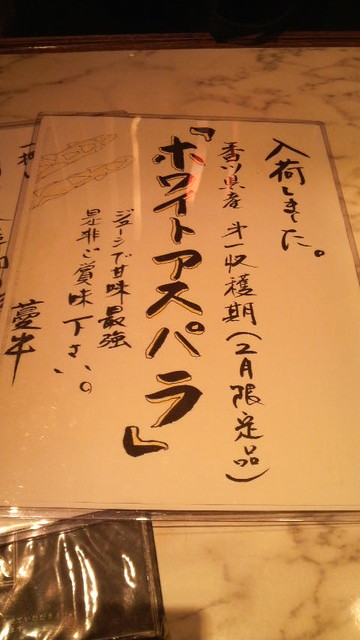 入荷しました。
香川県産 第一収穫期(2月限定品)
『ホワイトアスパラ』
ジューシで甘味最強
是非ご賞味下さい。
蔓牛